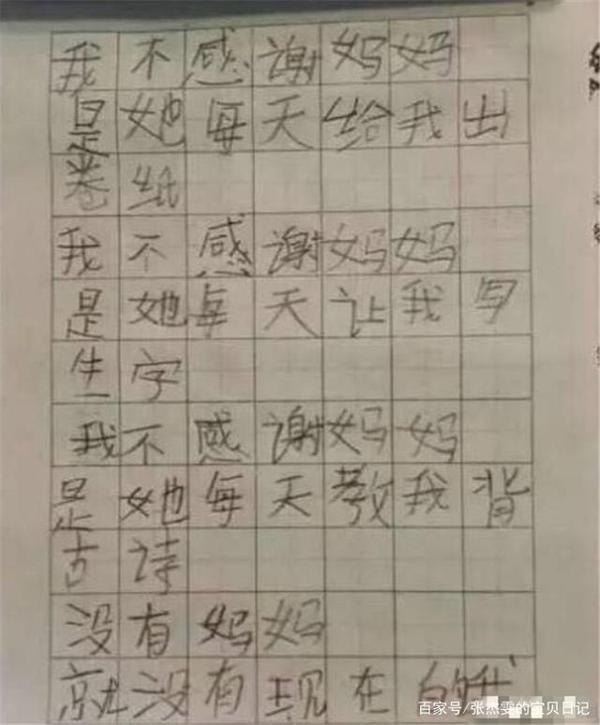 我不感谢妈妈
是她每天给我出
卷纸
我不感谢妈妈
是她每天让我写
生字
我不感谢妈妈
是她每天教我背
古诗
没有妈妈
就没有现在的我
百家号/张杰雯的宝贝日记